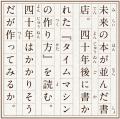 未来の本が並んだ書
店。四十年後に書か
れた『タイムマシン
の作り方』を読む。
四十年はかかりそう
だが作ってみるか。